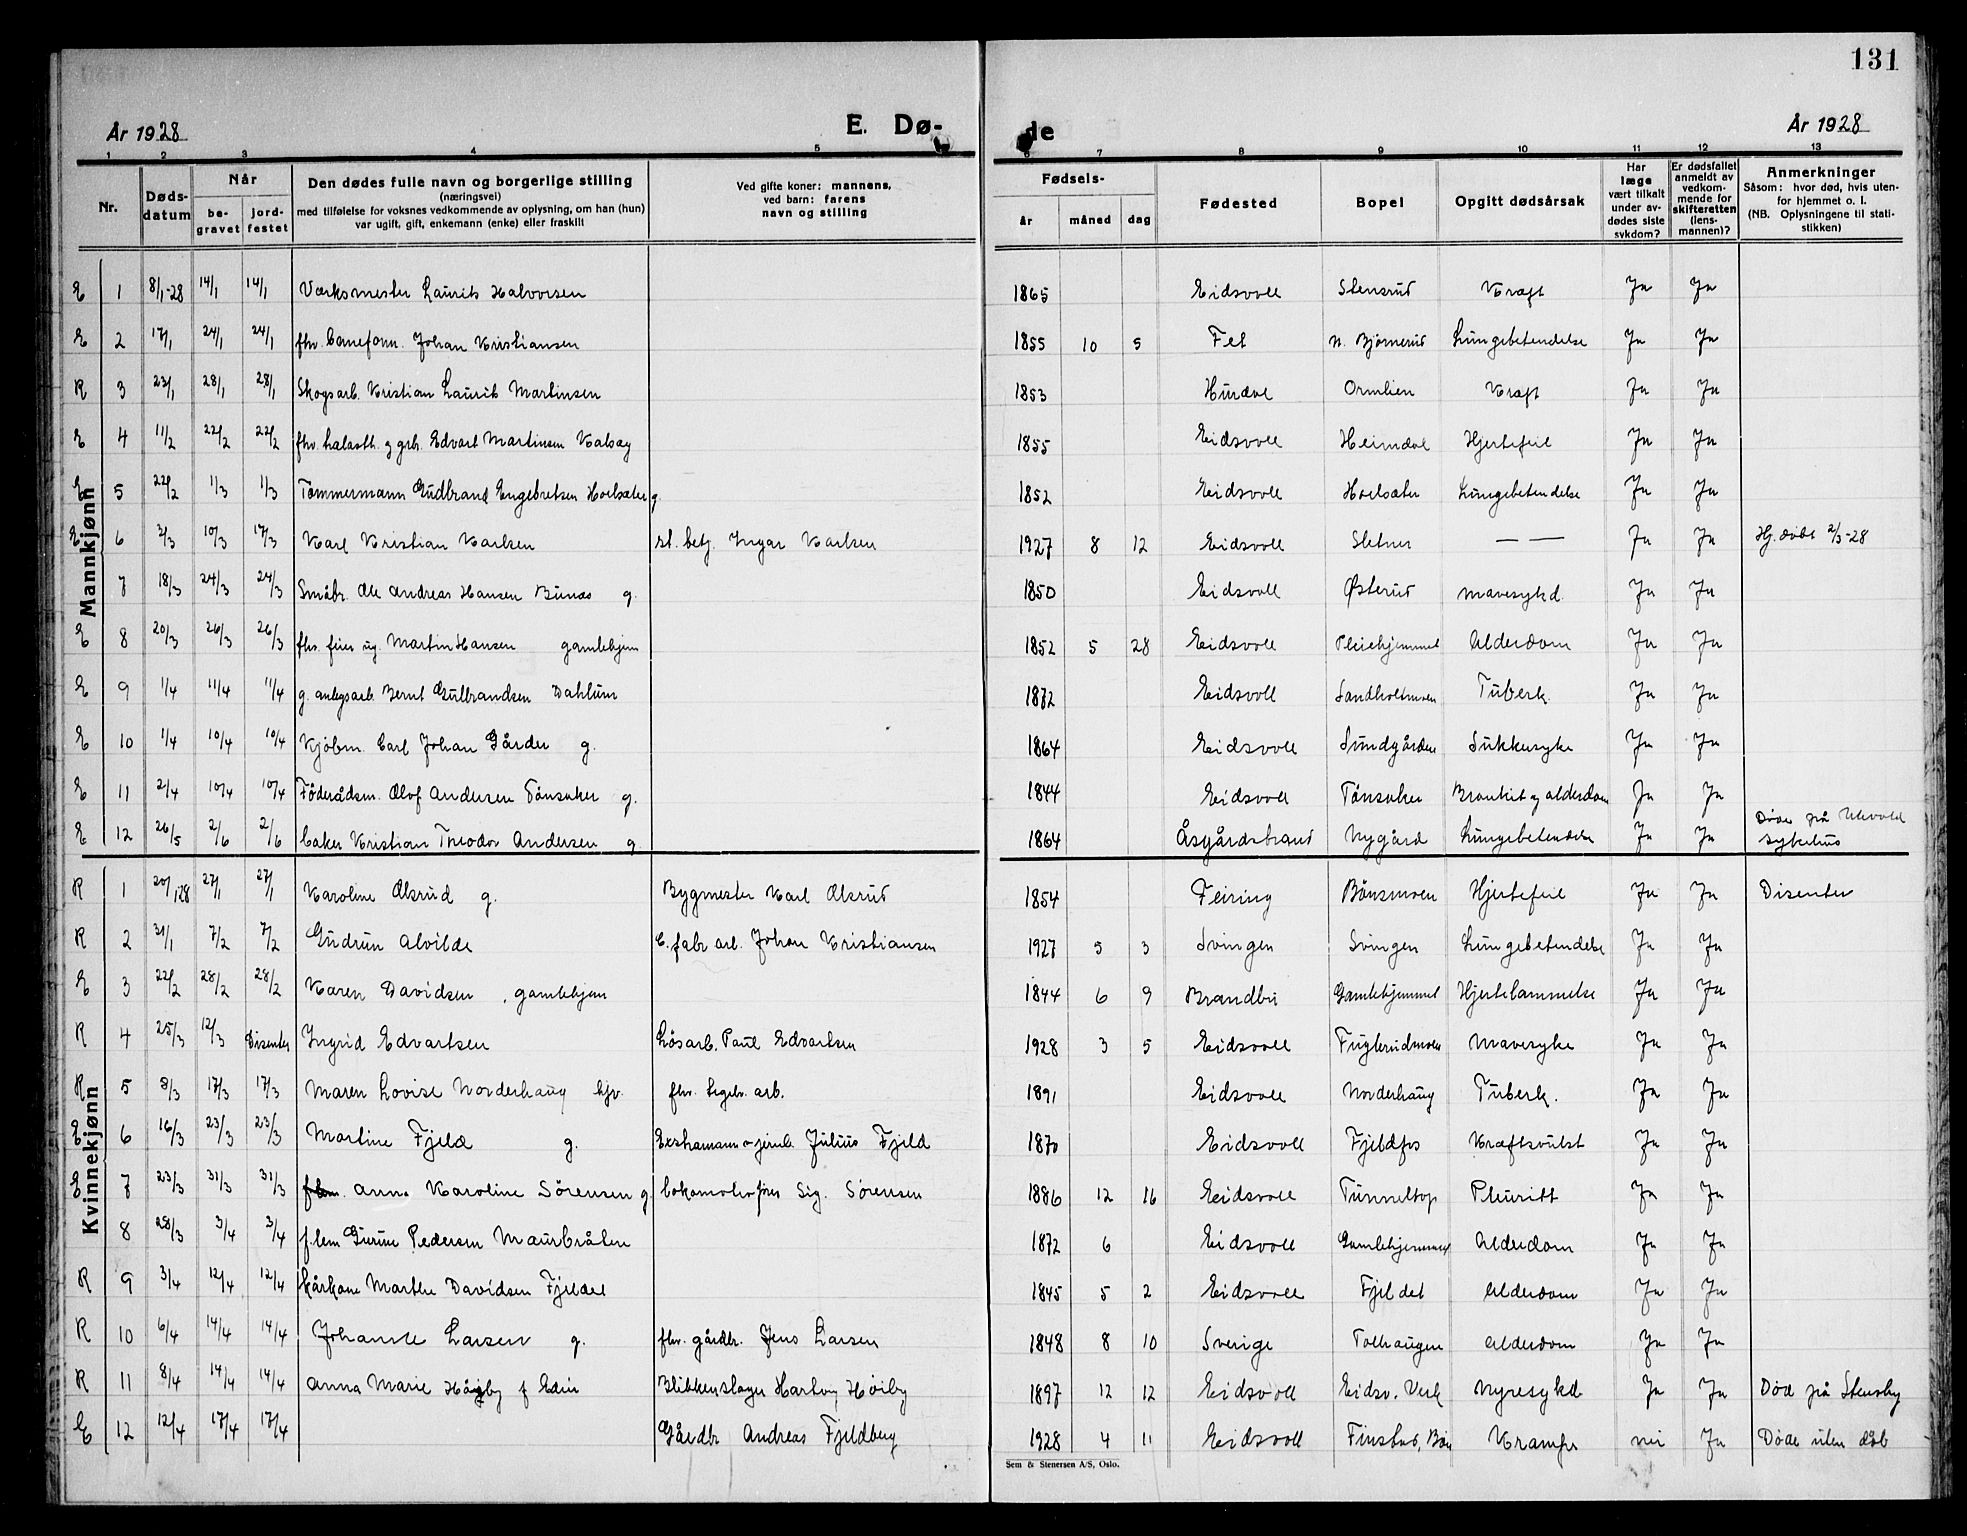 131
År 1928 E. Dø- de År 1928
1 2 3 4 5 6 7 8 9 10 11 12 13
Nr.
Døds-
datum
Når
be-
gravet
jord-
festet
Den dødes fulle navn og borgerlige stilling
(næringsvei)
med tilføielse for voksnes vedkommende av oplysning, om han (hun)
var ugift, gift, enkemann (enke) eller fraskilt
Ved gifte koner: mannens,
ved barn: farens
navn og stilling
Fødsels-
år måned dag
Fødested
Bopel
Opgitt dødsårsak
Har
læge
vært tilkalt
under av-
dødes siste
sykdom?
Er dødsfallet
anmeldt av
vedkom-
mende for
skifteretten
(lens-
mannen)?
Anmerkninger
Såsom: hvor død, hvis uten-
for hjemmet o. l.
(NB. Oplysningene til stati-
stikken)
Mannkjønn
E 1 8/1-28 14/1 14/1 Værksmester Laurits Halvorsen 1865 Eidsvoll Stensrud Kræft Ja Ja
E 2 17/1 24/1 24/1 fhv. Johan Kristiansen 1855 10 5 Fet N. Bjørnerud Lungebetendelse Ja Ja
R 3 23/1 28/1 28/1 Skogsarb. Kristian Laurits Martinsen 1853 Hurdal Ormlien Kræft Ja Ja
E 4 11/2 22/2 22/2 fhv. og grb. Edvart Martinsen 1855 Eidsvoll Heimdal Hjertefeil Ja Ja
E 5 22/2 1/3 1/3 Tømmermann Gudbrand Engebretsen Hoelsæter g. 1852 Eidsvoll Hoelsæter Lungebetendelse Ja Ja
E 6 2/3 10/3 17/3 Karl Kristian Karlsen st. betj. Ingar Karlsen 1927 8 12 Eidsvoll Sletner — — Ja Ja Hj. døbt 2/3-28
7 18/3 24/3 24/3 Småbr. Ole Andreas Hansen Bunæs g. 1850 Eidsvoll Østerud Mavesykd. Ja Ja
E 8 20/3 26/3 26/3 fhv. feier ug. Martin Hansen gamlehjem 1852 5 28 Eidsvoll Pleiehjemmet Alderdom Ja Ja
E 9 1/4 11/4 11/4 g. anlegsarb. Bernt Gulbrandsen Dahlum 1872 Eidsvoll Sandholtmoen Tuberk. Ja Ja
E 10 1/4 10/4 10/4 Kjøbm. Carl Johan Gårder g. 1864 Eidsvoll Sundgården Sukkersyke Ja Ja
E 11 2/4 10/4 10/4 Føderådsm. Olof Andersen Tønsaker g. 1844 Eidsvoll Tønsaker Bronkit og alderdom Ja Ja
E 12 26/5 2/6 2/6 baker Kristian Theodor Andersen g. 1864 Åsgårdstrand Nygård Lungebetendelse Ja Ja Døde på Ulevold sykehus
Kvinnekjønn
R 1 20/1 28 27/1 27/1 Karoline Olsrud g. Bygmester Karl Olsrud 1854 Feiring Bønsmoen Hjertefeil Ja Ja Disenter
R 2 31/1 7/2 7/2 Gudrun Alvilde C. fabr arb. Johan Kristiansen 1927 5 3 Svingen Svingen Lungebetendelse Ja Ja
E 3 22/2 28/2 28/2 Karen Davidsen, gamlehjem 1844 6 9 Brandbu Gamlehjemmet Hjertelammelse Ja Ja
R 4 25/3 12/3 Disenter Ingrid Edvartsen Løsarb. Paul Edvartsen 1928 3 5 Eidsvoll Fuglerudmoen Mavesyke Ja Ja
R 5 8/3 17/3 17/3 Maren Lovise Norderhaug fhv. teglv. arb. 1891 Eidsvoll Norderhaug Tuberk. Ja Ja
E 6 16/3 23/3 23/3 Martine Fjeld g. Julius Fjeld 1870 Eidsvoll Fjeldfos Kræftsvulst Ja Ja
E 7 23/3 31/3 31/3 Anna Karoline Sørensen g. Lokomotivfører Sig. Sørensen 1886 12 16 Eidsvoll Tunneltop Pleuritt Ja Ja
8 28/3 3/4 3/4 f. lem Gurine Pedersen Maurbråten 1872 6 Eidsvoll Gamlehjemmet Alderdom Ja Ja
R 9 3/4 12/4 12/4 kårkone Marthe Davidsen Fjeldet 1845 5 2 Eidsvoll Fjeldet Alderdom Ja Ja
R 10 6/4 14/4 14/4 Johanne Larsen g. fhv. gårdbr. Jens Larsen 1848 8 10 Sverige Tolhaugen Alderdom Ja Ja
R 11 8/4 14/4 14/4 Anna Marie Høiby f. Blikkenslager Høiby 1897 12 12 Eidsvoll Eidsv. Verk Nyresykd Ja Ja Død på Stensby
E 12 12/4 17/4 17/4 Gårdbr Andreas Fjeldberg 1928 4 11 Eidsvoll Finstad, Bøn Krampe nei Ja Døde uten dåb
Sem & Stenersen A/S, Oslo.